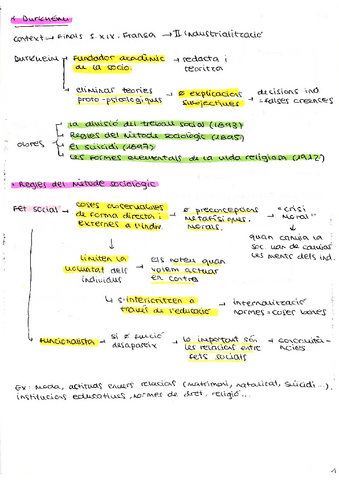 * Durkheim
Context → Finals s. XIX. França → II industrialització
Durkheim → fundador acadèmic de la socio. → redacta i teoritza
→ eliminar teories proto-psicològiques → ≠ explicacions subjectives → decisions ind = falses creences
Obres
La divisió del treball social (1893)
Regles del mètode sociològic (1895)
El suïcidi (1897)
Les formes elementals de la vida religiosa (1912)
• Regles del mètode sociològic
Fet social → coses observables de forma directa i externes a l'indiv. → ≠ preconcepcions metafísiques, morals. → "crisi moral"
quan canvia la soc. han de canviar les ments dels ind.
→ limiten la voluntat dels individus → els noteu quan volem actuar en contra
↳ s'interioritzen a través de l'educació → internalització normes = coser bones
Funcionalista → si ≠ funció desapareix → lo important són les relacions entre fets socials →
Ex: moda, actituds envers relacions (matrimoni, natalitat, suïcidi...), institucions educatives, normes de dret, religió...
1